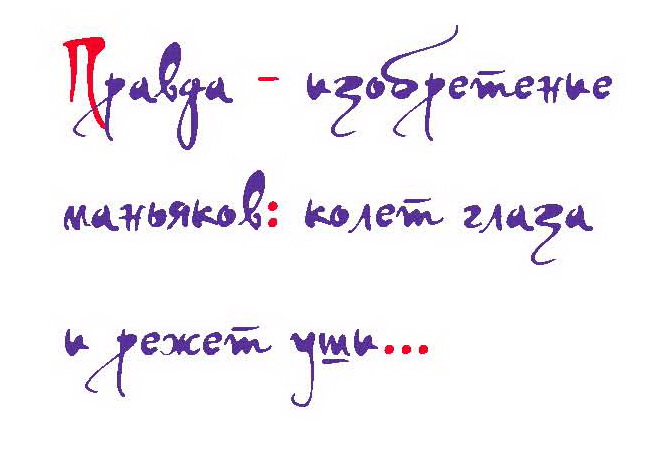 Правда - изобретение
маньяков: колет глаза
и режет уши...